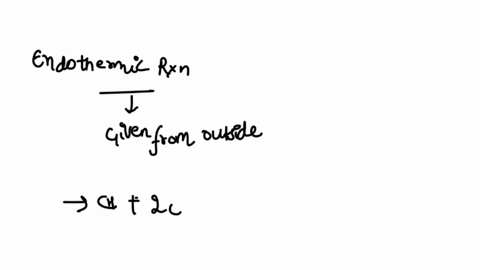 Endothermic Rxn
↓
Given from outside
→ CH + 2C